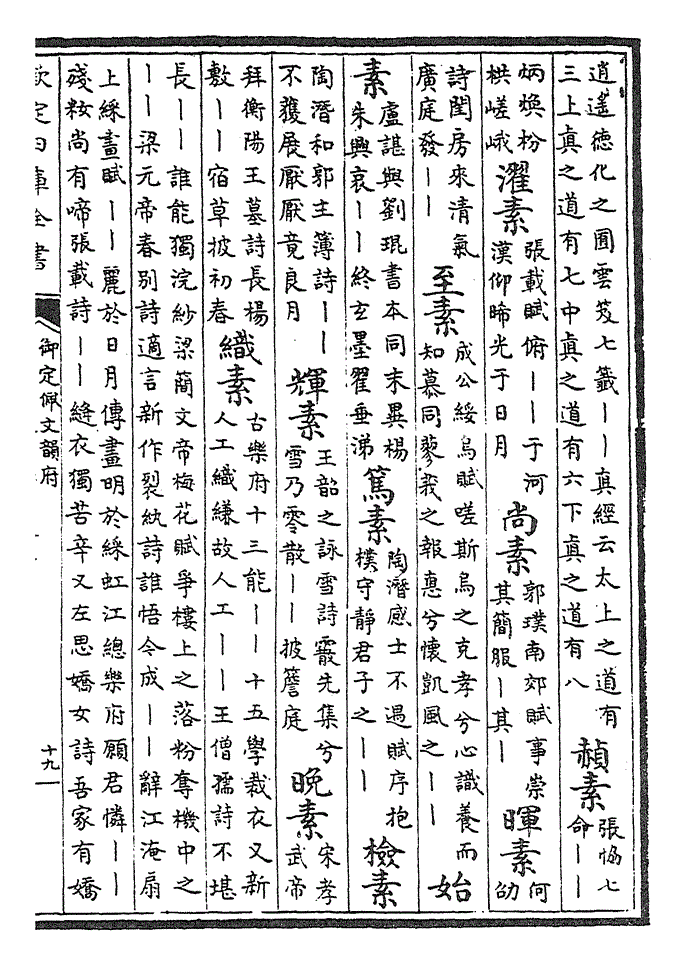 逍遙德化之圃雲笈七籖丨丨真經云太上之道有
三上真之道有七中真之道有六下真之道有八
赬素
張協七
命丨丨
炳煥粉
栱嵯峨
濯素
張載賦俯丨丨于河
漢仰晞光于日月
尚素
郭璞南郊賦事崇
其簡服丨其丨
暉素
何
劭
詩閨房來清氣
廣庭發丨丨
至素
成公綏烏賦嗟斯烏之克孝兮心識養而
知慕同蓼莪之報惠兮懷凱風之丨丨
始
素
盧諶與劉琨書本同末異楊
朱興哀丨丨終玄墨翟垂涕
篤素
陶潛感士不遇賦序抱
樸守靜君子之丨丨
檢素
陶潛和郭主簿詩丨丨
不獲展厭厭竟良月
輝素
王韶之詠雪詩霰先集兮
雪乃零散丨丨被簷庭
晚素
宋孝
武帝
拜衡陽王墓詩長楊
敷丨丨宿草披初春
織素
古樂府十三能丨丨十五學裁衣又新
人工織縑故人工丨丨王僧孺詩不堪
長丨丨誰能獨浣紗梁簡文帝梅花賦爭樓上之落粉奪機中之
丨丨梁元帝春別詩適言新作裂紈詩誰悟今成丨丨辭江淹扇
上綵畫賦丨丨麗於日月傳畫明於綵虹江總樂府願君憐丨丨
殘粧尚有啼張載詩丨丨縫衣獨苦辛又左思嬌女詩吾家有嬌
欽定四庫全書
御定佩文韻府
十九